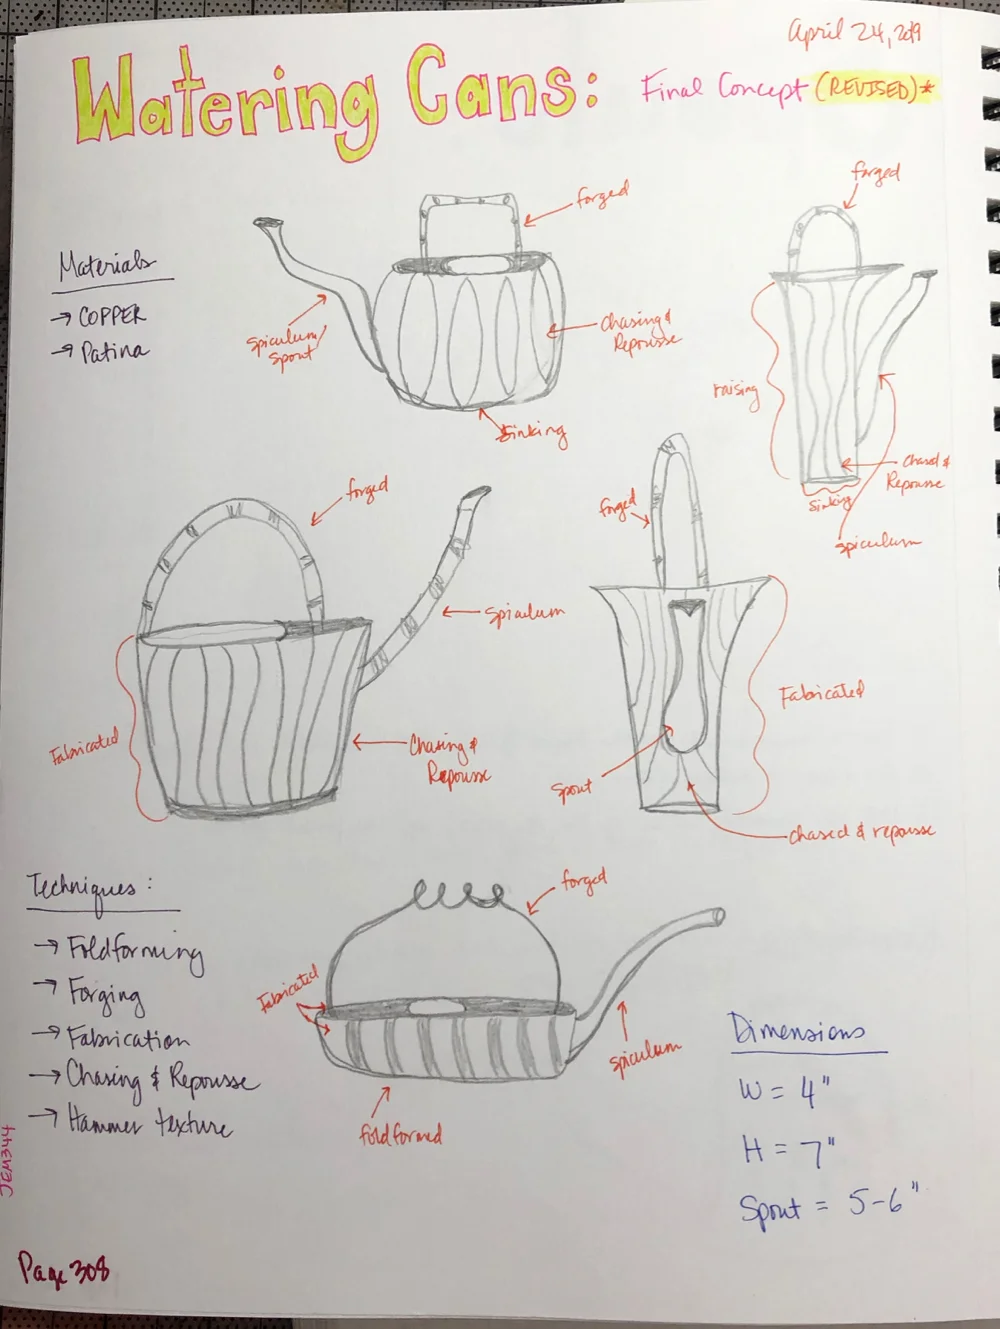 April 24, 2019
Watering Cans: Final Concept (REVISED)*
Materials
→ COPPER
→ Patina
forged
spiculum/
spout
Chasing &
Repousse
Sinking
forged
raising
Chased &
Repousse
Sinking
spiculum
forged
Spiculum
Fabricated
Chasing &
Repousse
forged
Fabricated
Spout
chased & repousse
Techniques:
→ Foldforming
→ Forging
→ Fabrication
→ Chasing & Repousse
→ Hammer texture
forged
Fabricated
spiculum
foldformed
Dimensions
W = 4"
H = 7"
Spout = 5-6"
JEM344
Page 308